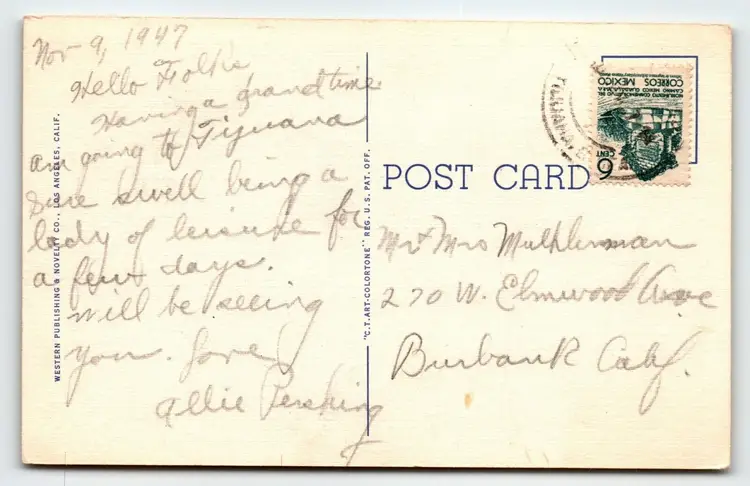 Nov 9, 1947
Hello Folks
Having a grand time
am going to Tijuana
Sure swell being a
lady of leisure for
a few days.
Will be seeing
you. Love
Allie Pershing
WESTERN PUBLISHING & NOVELTY CO., LOS ANGELES, CALIF.
"C.T. ART-COLORTONE" REG. U.S. PAT. OFF.
POST CARD
Mr & Mrs
270 W. Elmwood Ave
Burbank Calif.
6 CENT
MONUMENTO CONMEMORATIVO DEL
CAMINO MEXICO GUADALAJARA
CORREOS MEXICO
TIJUANA, B.